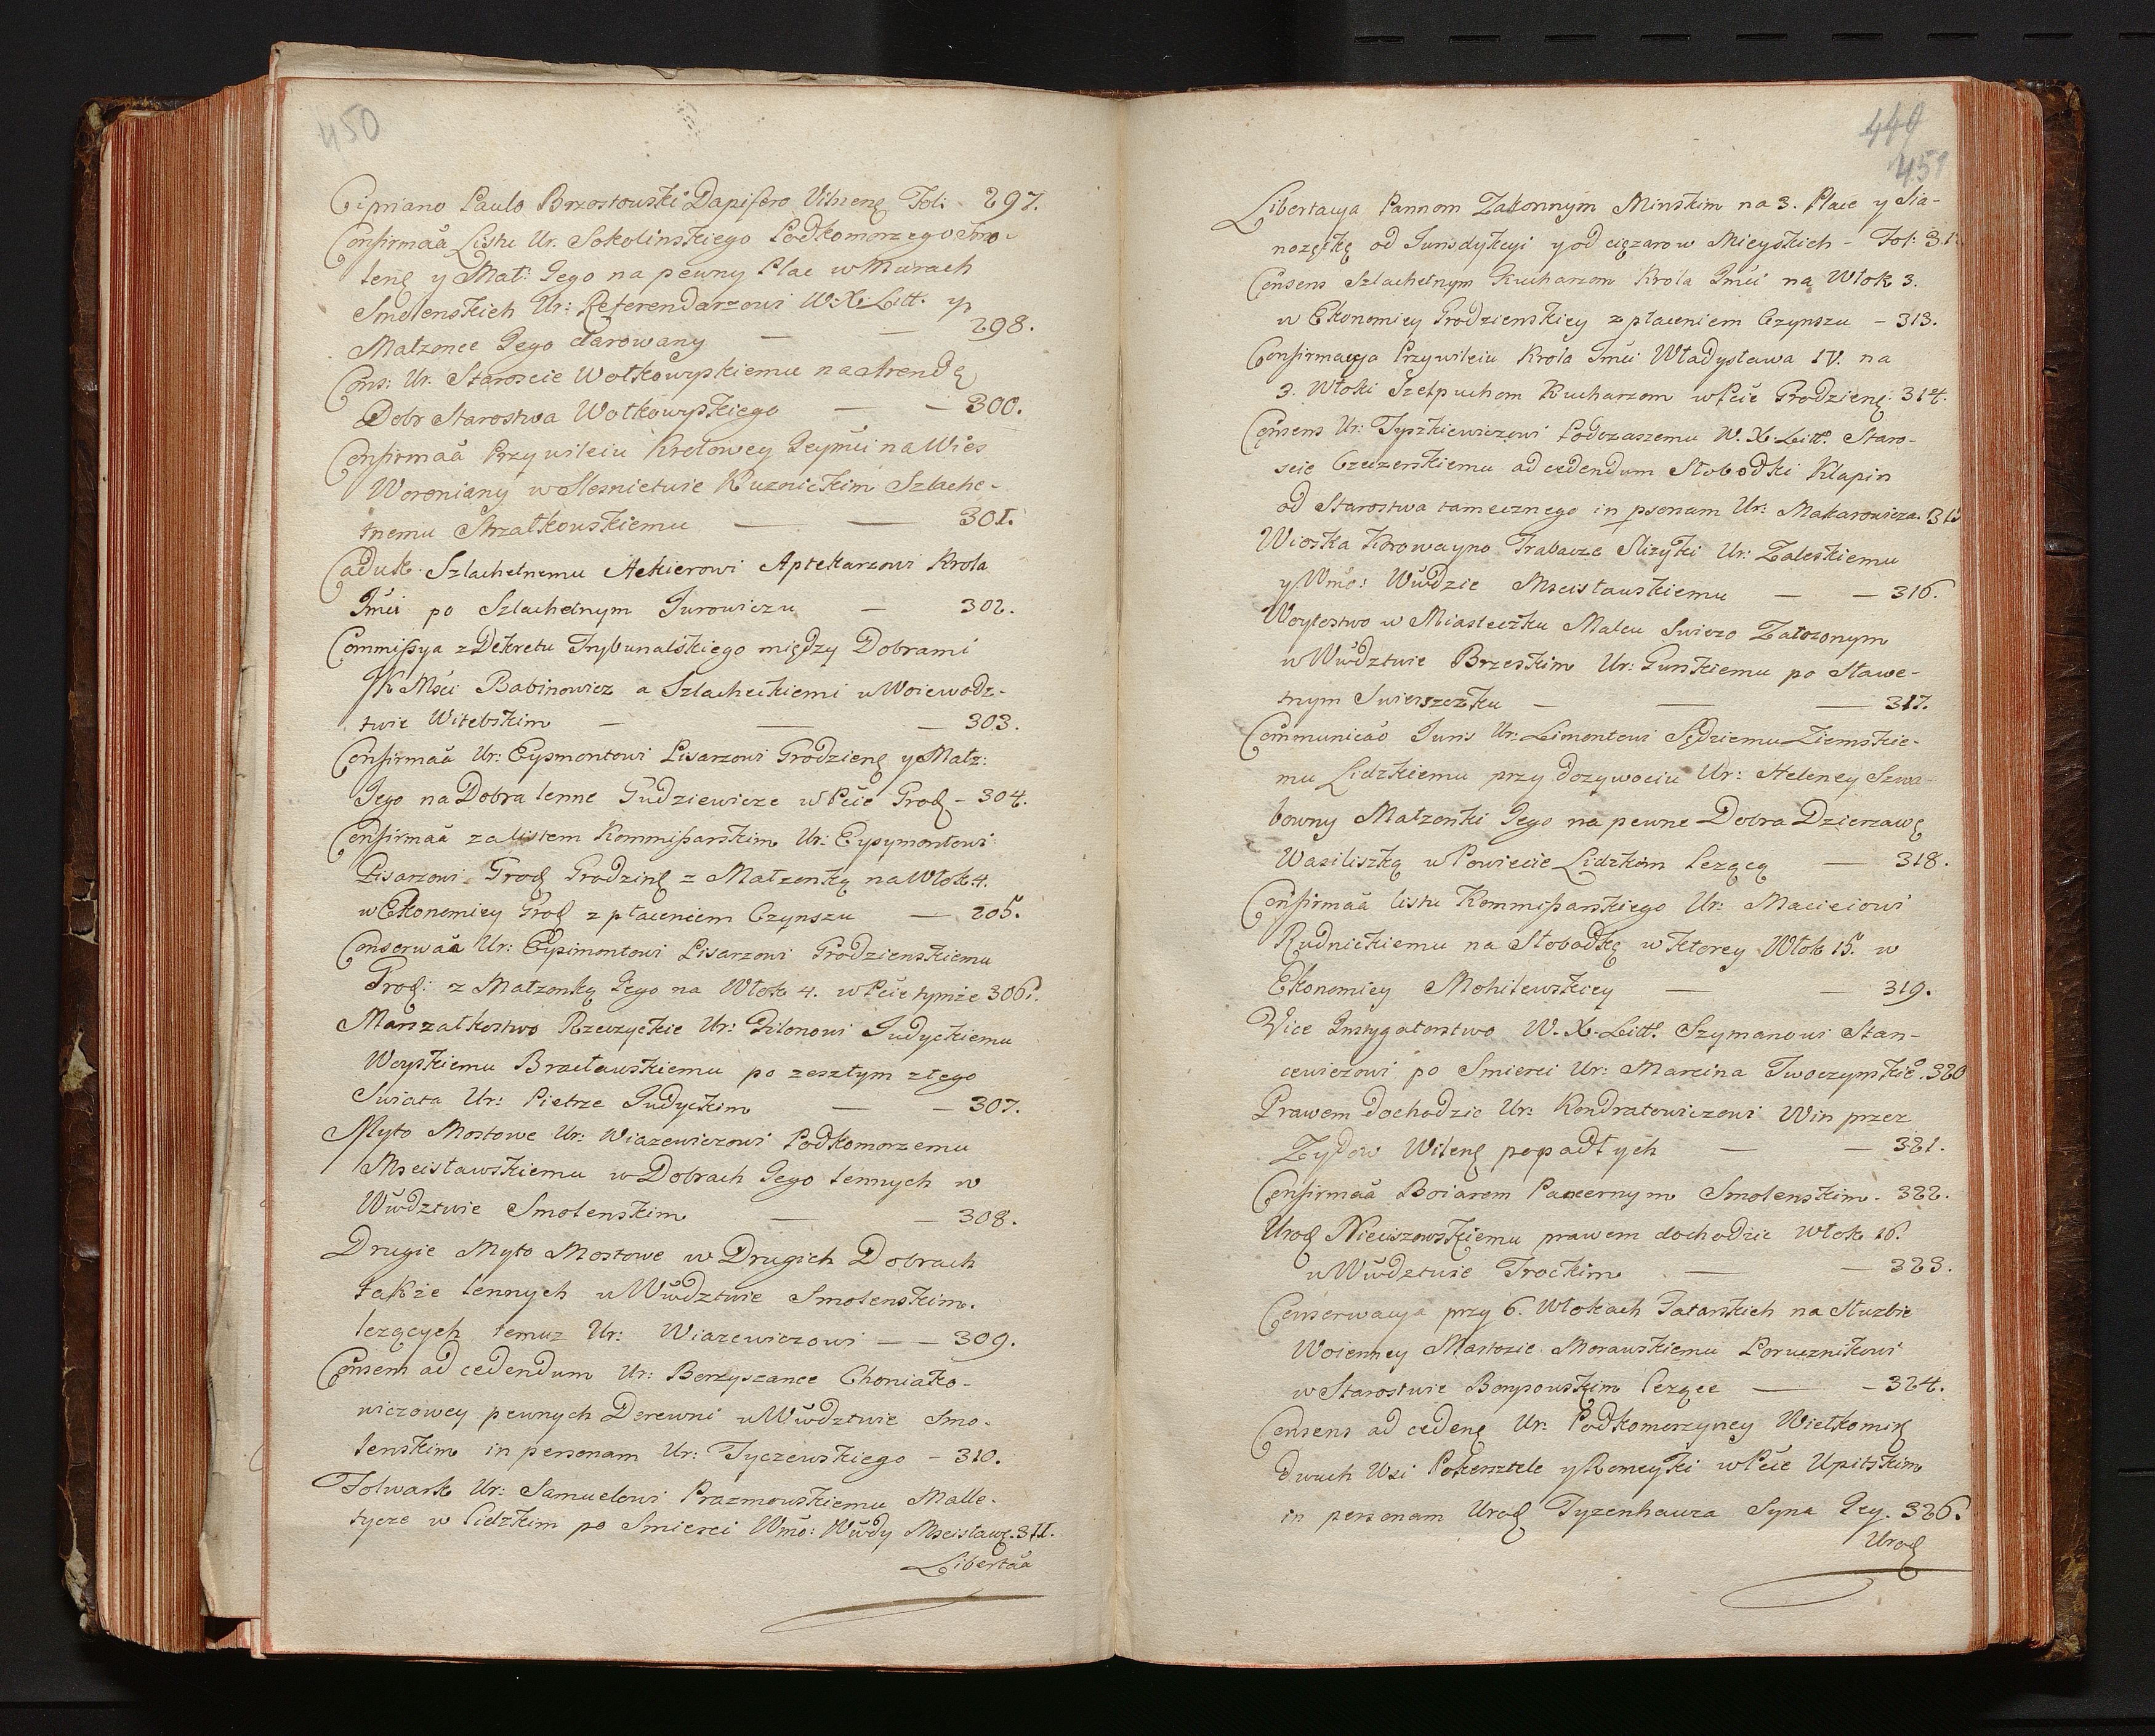 450
Cipriano Paulo Brzostouski Dapifero Vilnenę Fol: 297.
Confirmaã Listu Ur. Sokolinskiego Podkomorzego Smo-
lenę y Mał: Jego na pewny Plac w Murach
Smolenskich Ur: Referendarzowi W. X. Litt. y
Małzonce Jego darowany — — 298.
Cons: Ur. Staroscie Wołkowyskiemu na Arendę
Dobr Starostwa Wołkowyskiego — — 300.
Confirmaã Przywileiu Krolowey Jeymci na Wies
Woroniany w Lesnictwie Kuznickim Szlache-
tnemu Strzałkowskiemu — — 301.
Caduk Szlachetnemu Aekierowi Aptekarzowi Krola
Jmci po Szlachetnym Jurowiczu — 302.
Commissya z Dekretu Trybunalskiego między Dobrami
JK Mści Babinowicz a Szlacheckiemi w Woiewodz-
twie Witebskim — — — 303.
Confirmaã Ur: Eysmontowi Pisarzowi Grodzienę y Małz:
Jego na Dobra lenne Gudziewicze w Pcie Grod – 304.
Confirmaã za listem Kommissarskim Ur: Eysymontowi
Pisarzowi Grod Grodzinę z Małzonką na Włok 4.
w Ekonomiey Grod z płaceniem Czynszu — 205.
Conserwaã Ur: Eysimontowi Pisarzowi Grodzienskiemu
Grod: z Małzonką Jego na Włok 4. w Pcie tymże 306.
Marszałkostwo Rzeczyckie Ur: Gilonowi Judyckiemu
Woyskiemu Bracławskiemu po zeszłym z tego
Swiata Ur: Pietrze Judyckim — — 307.
Myto Mostowe Ur: Wiazewiczowi Podkomorzemu
Mscisławskiemu w Dobrach Jego lennych w
Wwdztwie Smolenskim — — 308.
Drugie Myto Mostowe w Drugich Dobrach
także lennych w Wwdztwie Smolenskim.
lezących temuz Ur: Wiazewiczowi — — 309.
Consens ad cedendum Ur: Borzyszance Choniako-
wiczowey pewnych Derewni w Wwdztwie Smo-
lenskim in personam Ur: Tyczewskiego – 310.
Folwark Ur: Samuelowi Prazmowskiemu Malle-
tycze w Lidzkim po Smierci Wmo: Wwdy Mscisławę. 311.
Libertaã
449
451
Libertacya Pannom Zakonnym Minskim na 3. Place y Sia-
nozęckę od Jurisdykcyi y od cięzarow Mieyskich – Fol: 31
Consens Szlachetnym Kucharzom Krola Jmci na Włok 3.
w Ekonomiey Grodzienskiey z płaceniem Czynszu – 313.
Confirmacya Przywileiu Krola Jmci Władysława IV. na
3. Włoki Szelpuchom Kucharzom w Pcie Grodzienę: 314.
Consens Ur: Tyszkiewiczowi Podczaszemu W. X. Litt. Staro-
scie Czeczerskiemu ad cedendum Słobodki Klapin
od Starostwa tamecznego in psonam Ur: Makarowicza. 315
Wioska Korowayno Trabacze Slizyki Ur: Zaleskiemu
y Wmo: Wwdzie Mscisławskiemu — — 316.
Woytostwo w Miasteczku Malcu swiezo Załozonym
w Wwdztwie Brzeskim Ur: Gunskiemu po Sławe-
tnym Swierszczku — — — 317.
Communicaõ Juris Ur: Limontowi Sędziemu Ziemskie-
mu Lidzkiemu przy dozywociu Ur: Heleney Szwa-
bowny Małzonki Jego na pewne Dobra Dzierzawę
Wasiliszką w Powiecie Lidzkim lezącą — 318.
Confirmaã listu Kommissarskiego Ur: Macieiowi
Rudnickiemu na Słobodkę w ktorey Włok 15. w
Ekonomiey Mohilewskiey — — 319.
Vice Instygatorstwo W. X. Litt. Szymanowi Stan-
cewiczowi po Smierci Ur: Marcina Twoczymskiẽ. 320
Prawem dochodzic Ur: Kondratowiczowi Win przez
Zydow Wilenę popadłych — — 321.
Confirmaã Boiarom Pancernym Smolenskim. 322.
Urod Nieciszowskiemu prawem dochodzic Włok 16.
w Wwdztwie Trockim — — 323.
Conserwacya przy 6. Włokach Tatarskich na Słuzbie
Woienney Mastozie Morawskiemu Porucznikowi
w Starostwie Bonpouskim lezące — – 324.
Consens ad cedenę Ur: Podkomorzyney Wiełkomirę
dwuch Wsi Pokersztele y Romeyki w Pcie Upitskim
in personam Urod Tyzenhauza Syna Jey. 326.
Urod